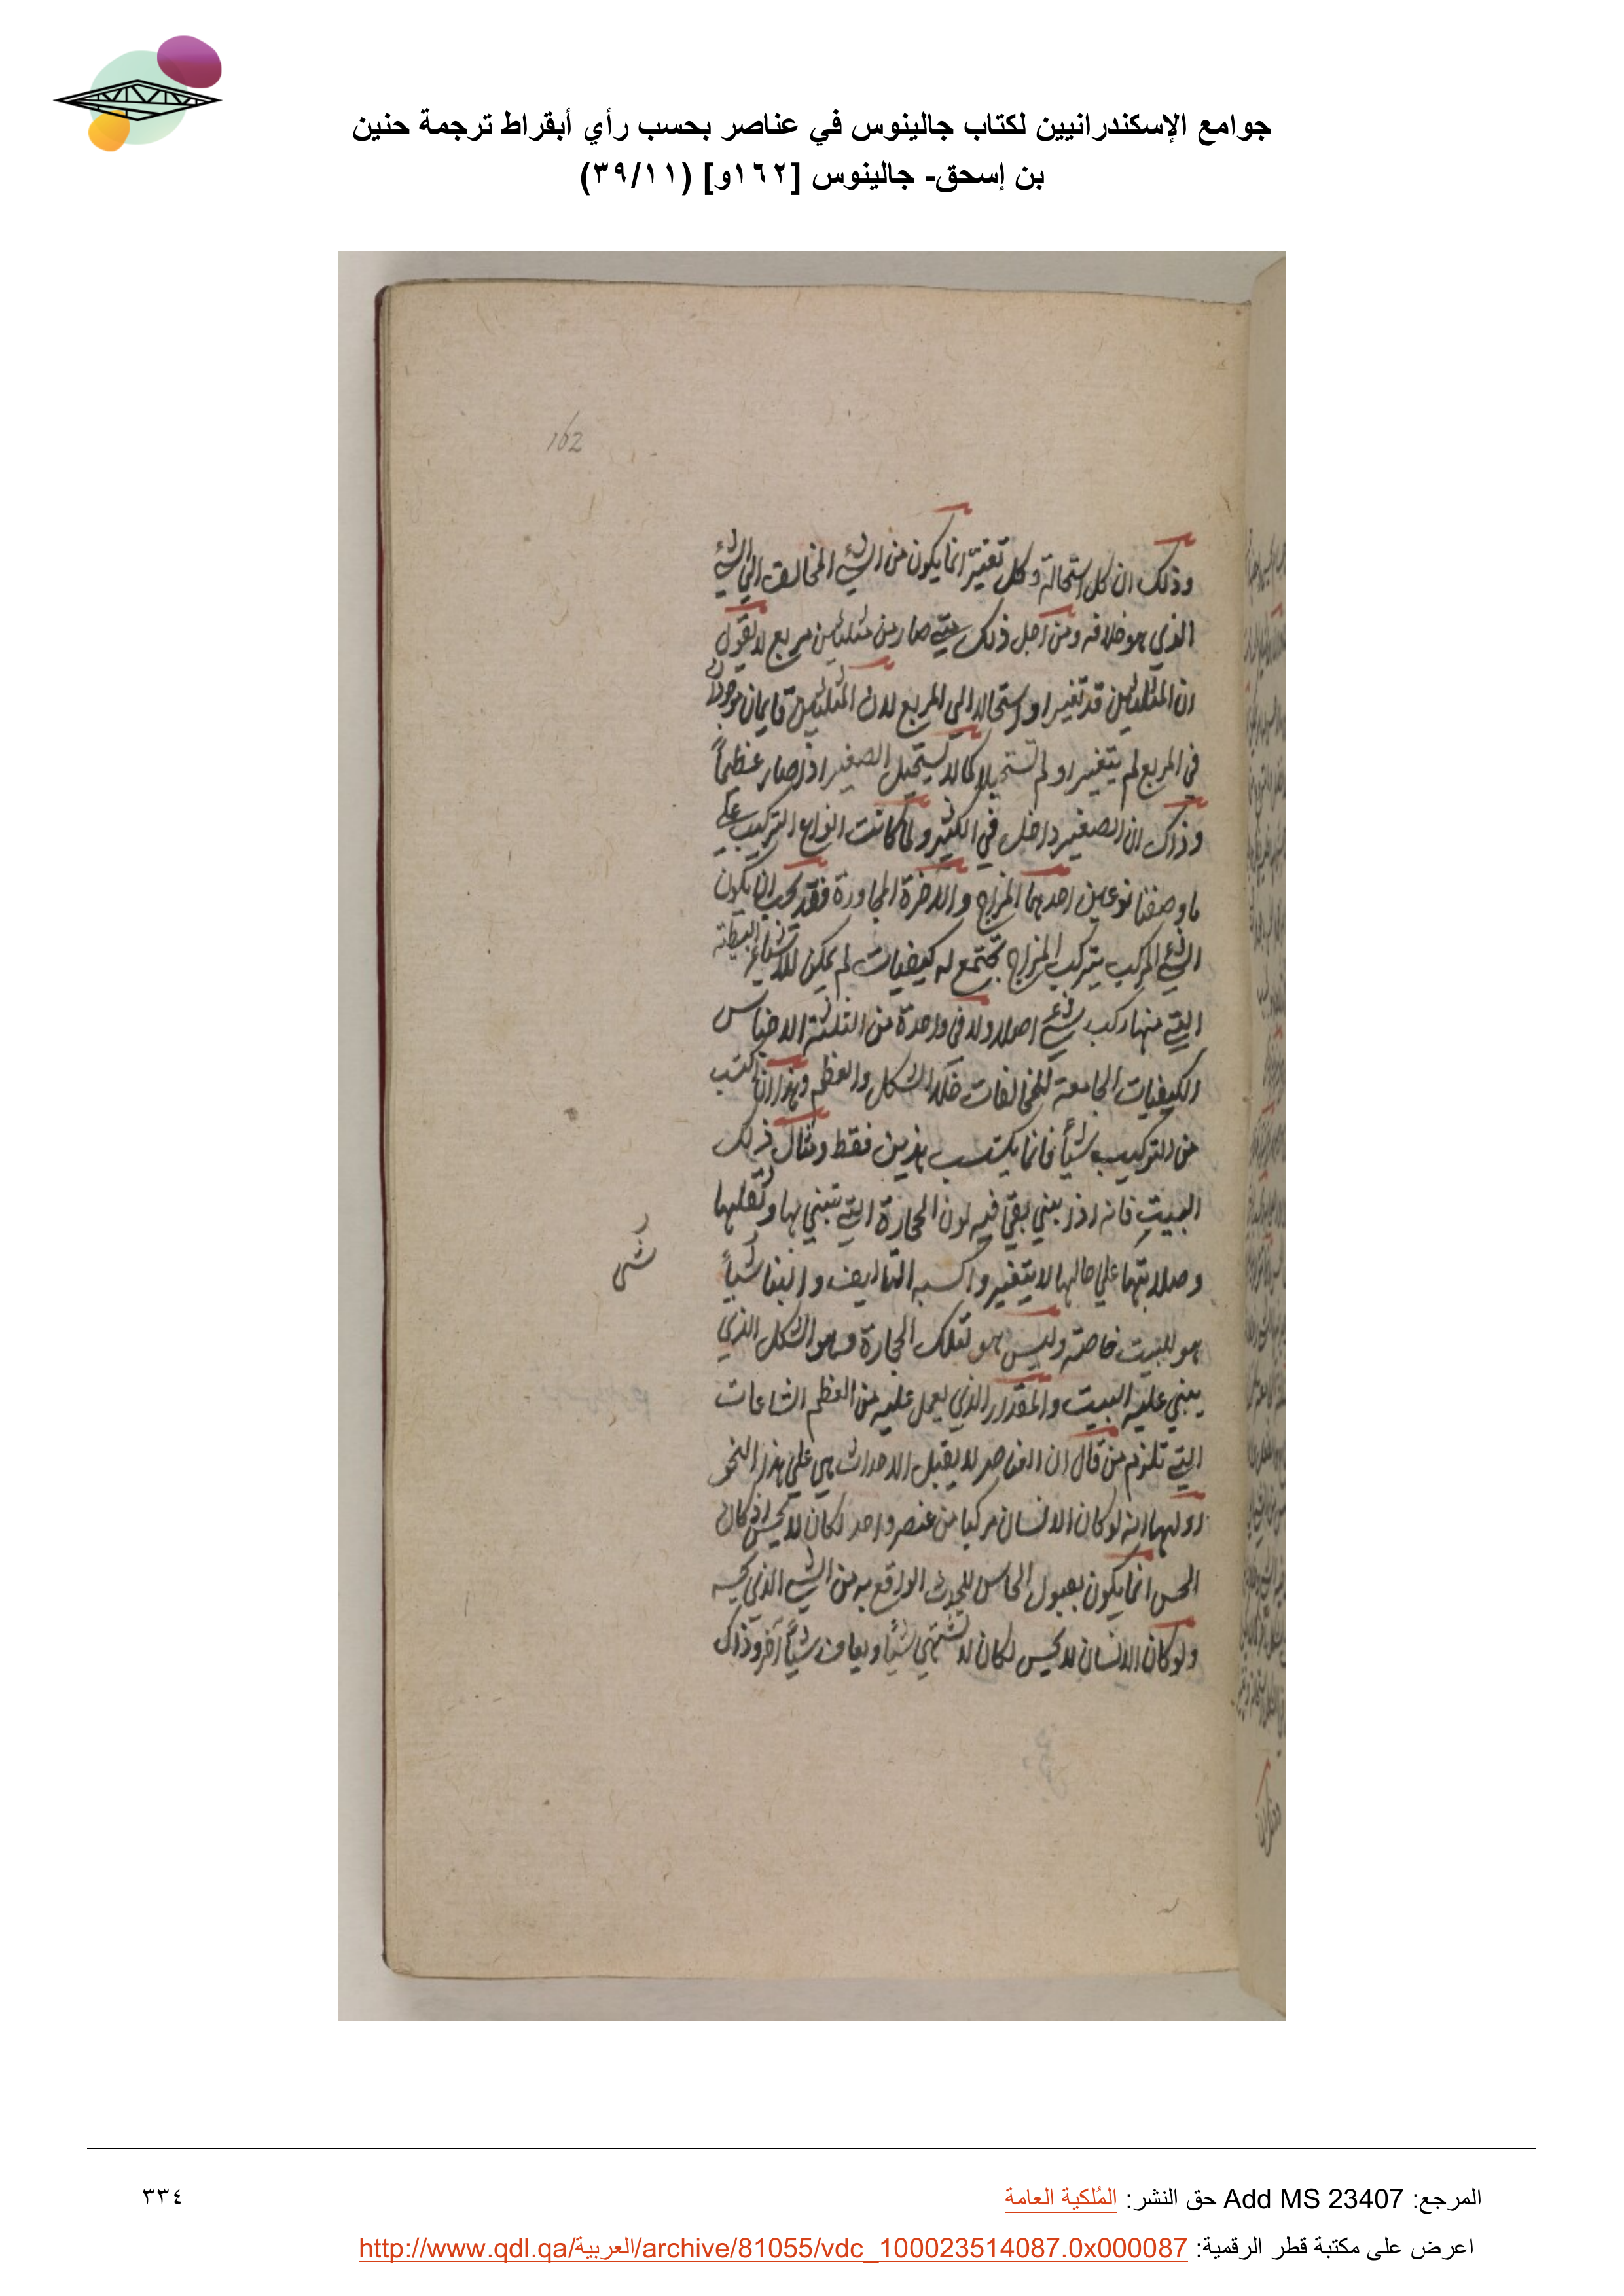 جوامع الإسكندرانيين لكتاب جالينوس في عناصر بحسب رأي أبقراط ترجمة حنين
بن إسحق- جالينوس [١٦٢و] (٣٩/١١)
162
وذلك ان كل استحالة وكل تغيّر انما يكون من الشيء المخالف الى الشيء
الذي هو خلافه ومن اجل ذلك متى صار من مثلثين مربع لا يقول
ان المثلثين قد تغيرا واستحالا الى المربع لان المثلثين قايمان موجودان
في المربع لم يتغيرا ولم تستحيلا كما لا يستحيل الصغير اذا صار عظيماً
وذلك ان الصغير داخل في الكثير ولما كانت انواع التركيب على
ما وصفنا نوعين احدهما المزاج والاخرة المجاورة فقد يجب ان يكون
الشيء المركب بتركيب المزاج تجتمع له كيفيات لم يمكن للاشياء البسيطة
التي منها ركب شيء اصلا ولا في واحدة من الثلثة الاجناس
الكيفيات الجامعة للمخالفات خلا الشكل والعظم وهذا ان اكتسب
من التركيب شيأً فانما يكتسب هذين فقط ومثال ذلك
البيت فانه اذا بني بقى فيه لون الحجارة التي تبني بها وثقلها
وصلابتها على حالها لا يتغير واكسبه التاليف والبنا شيأً
هو للبيت خاصة وليس هو لتلك الحجارة وهو الشكل الذي
يبني عليه البيت والمقدار الذي يعمل عليه من العظم الشناعات
التي تلزم من قال ان العناصر لا يقبل الاحداث هي على هذا النحو
اولها انه لو كان الانسان مركبا من عنصر واحد لكان لا يحس اذ كان
الحس انما يكون بقبول الحاس للحدث الواقع به من الشيء الذي يحسه
ولو كان الانسان لا يحس لكان لا تشتهي شيأً ويعاف شيأً آخر وذلك
المرجع: Add MS 23407 حق النشر: المُلكية العامة
٣٣٤
اعرض على مكتبة قطر الرقمية: http://www.qdl.qa/العربية/archive/81055/vdc_100023514087.0x000087